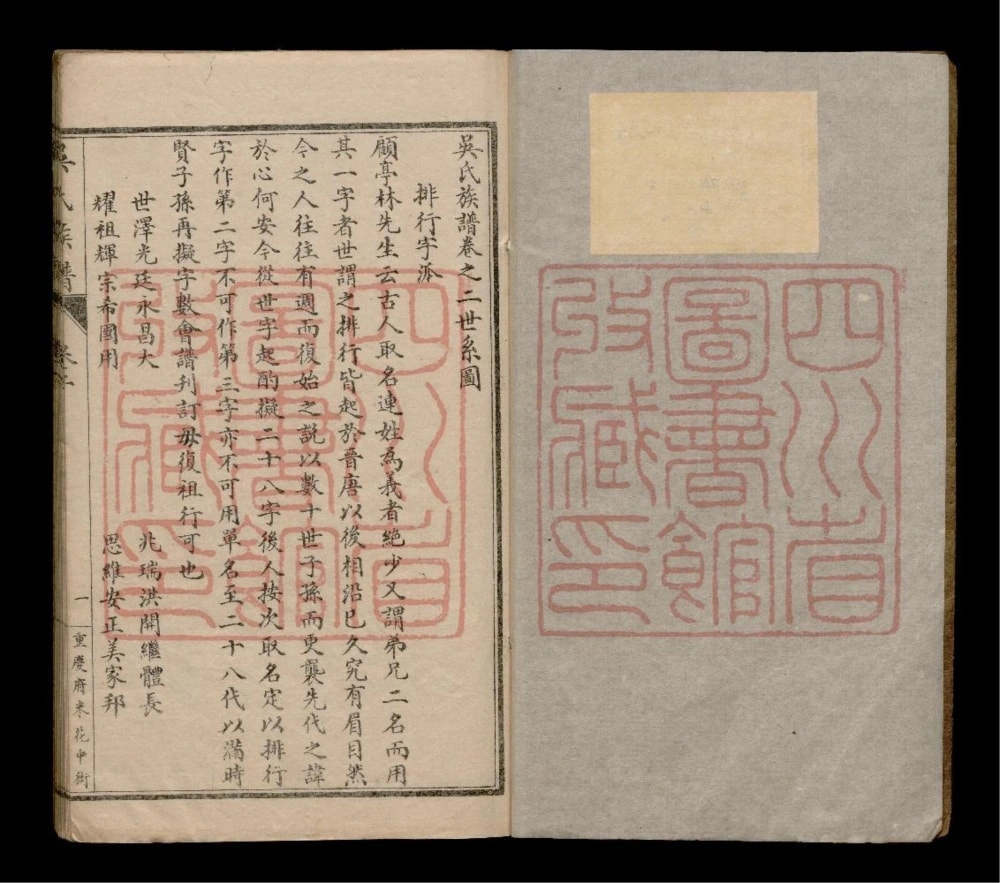 四川省
圖書館
收藏印
吳氏族譜卷之二世系圖
排行字派
顧亭林先生云古人取名連姓為義者絶少又謂弟兄二名而用
其一字者世謂之排行皆起於晉唐以後相沿已久究有眉目然
今之人往往有週而復始之説以數十世子孫而更襲先代之諱
於心何安今從世字起酌擬二十八字後人按次取名定以排行
字作第二字不可作第三字亦不可用單名至二十八代以滿時
賢子孫再擬字數會譜刋訂毋復祖行可也
世澤光廷永昌大 兆瑞洪開繼體長
耀祖輝宗希國用 思維安正美家邦
吳氏族譜 卷二 一 重慶府米花中街